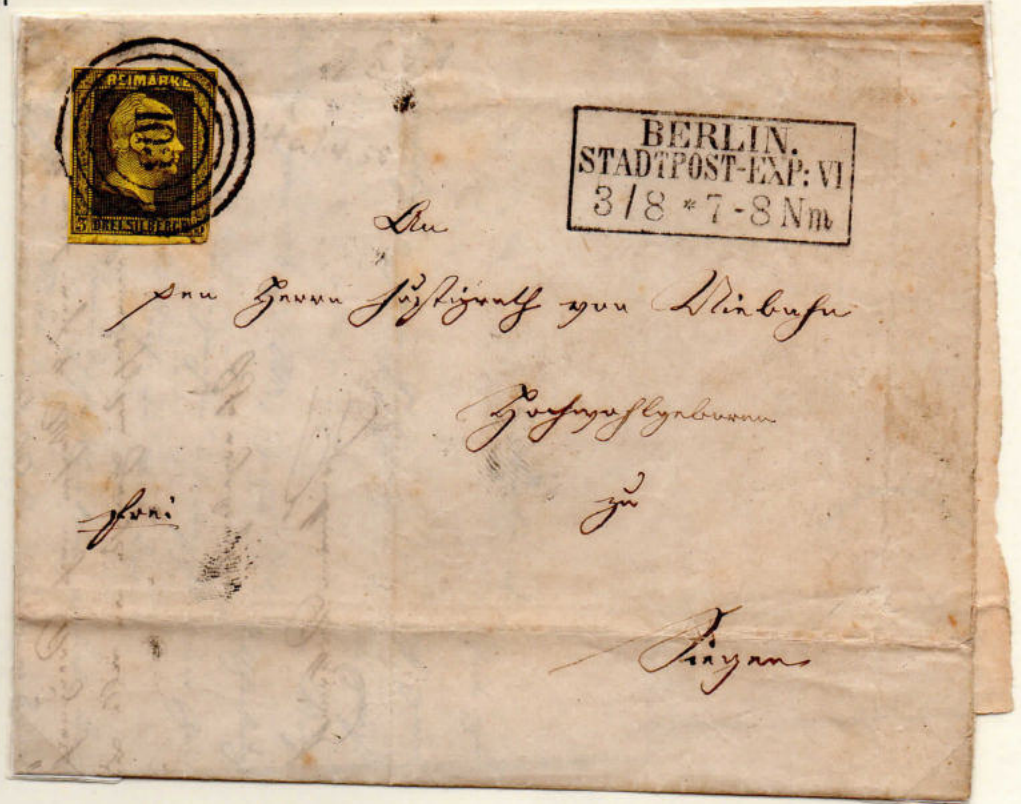 FREIMARKE
103
3 DREI SILBERGR. 3
BERLIN.
STADTPOST-EXP: VI
3/8 * 7-8 Nm
An
den Herrn Justizrath von Viebahn
Hochwohlgeboren
zu
frei
Siegen